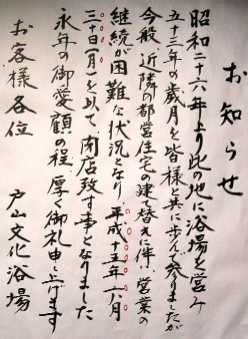 お知らせ
昭和二十六年より此の地に浴場を営み
五十三年の歳月を皆様と共に歩んで参りましたが
今般、近隣の都営住宅の建て替えに伴い、営業の
継続が困難な状況となり、平成十五年八月
三十日(月)を以て閉店致す事となりました
永年の御愛顧の程、厚く御礼申し上げます
お客様各位
戸山文化浴場